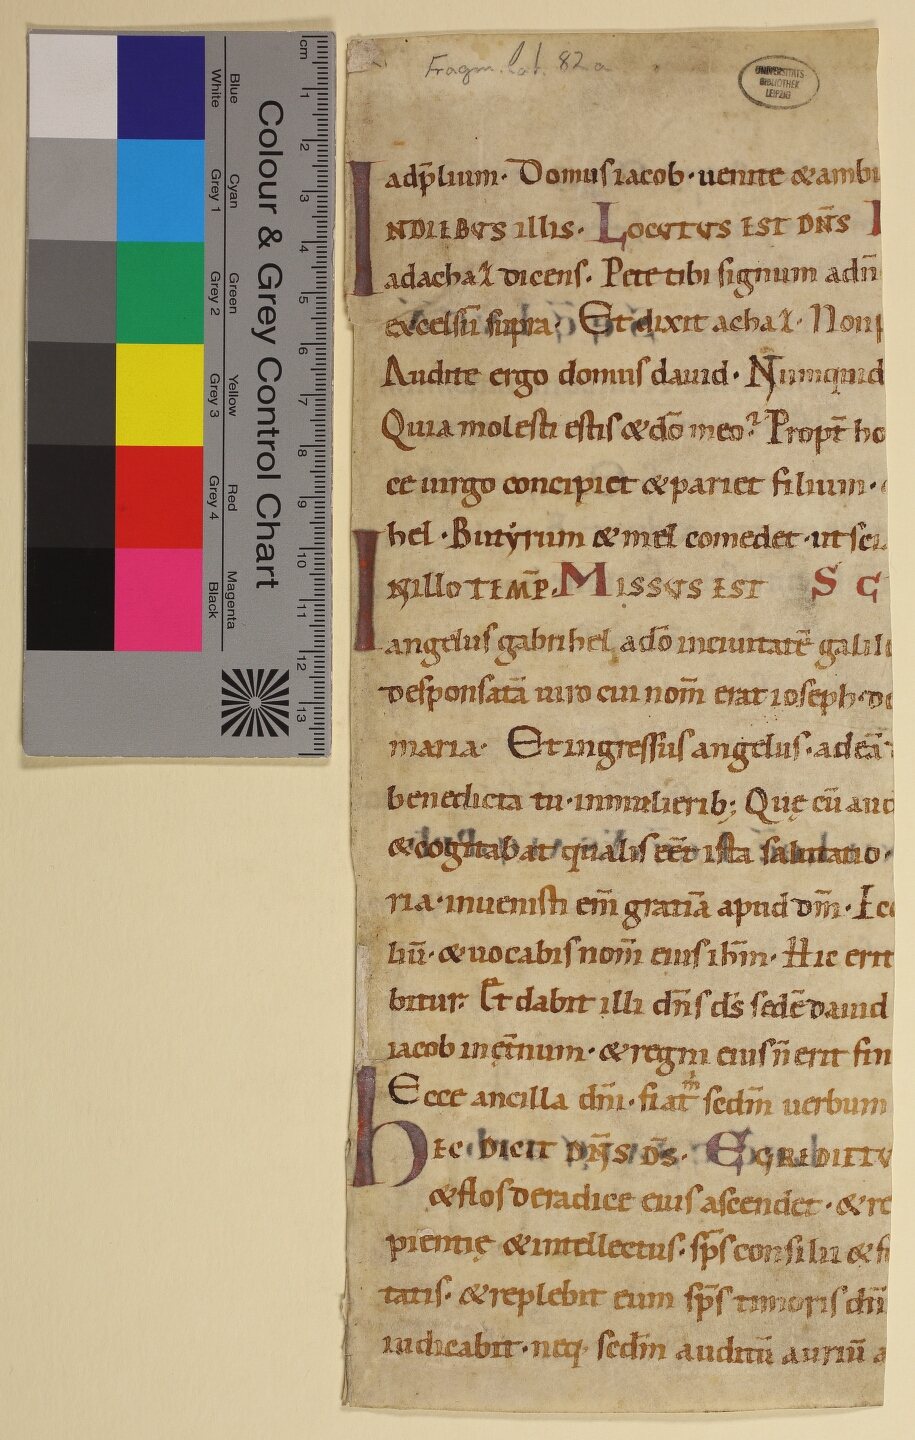 Fragm. lat. 82 a
UNIVERSITÄTS
BIBLIOTHEK
LEIPZIG
cm 1 2 3 4 5 6 7 8 9 10 11 12 13
Colour & Grey Control Chart
Blue Cyan Green Yellow Red Magenta
White Grey 1 Grey 2 Grey 3 Grey 4 Black
adp̄lium· Domus iacob· uenite & ambu
INDIEBUS illis· LOCUTUS EST DN̄S
ad achaz dicens· Pete tibi signum a dn̄
excelsū supra· Et dixit achaz· Non p
Audite ergo domus dauid· Nūmquid
Quia molesti estis & dō meo? Propt̄ ho
ce uirgo concipiet & pariet filium·
hel· Butẏrum & mel comedet· ut sci
INILLO TEMP̄. MISSUS EST S G
angelus gabrihel a dō in ciuitatē galile
desponsatā uiro cui nom̄ erat ioseph· de
maria· Et ingressus angelus· ad eā
benedicta tu· in mulierib; Quę cū aud
& cogitabat qualis eēt ista salutatio·
ria· inuenisti em̄ gratiā apud dm̄· Ecc
liū· & uocabis nom̄ eius ih̄m· Hic erit
bitur· Et dabit illi dn̄s d̄s sedē dauid
iacob in et̄num· & regni eius n̄ erit fin
Ecce ancilla dn̄i· fiat m̄ sedm̄ uerbum
HEC DICIT DN̄S D̄S· EGREDIETU
& flos de radice eius ascendet· & re
pientię & intellectus· sp̄s consilii & f
tatis· & replebit eum sp̄s timoris dn̄i
iudicabit· neq· sedm̄ auditū auriū a